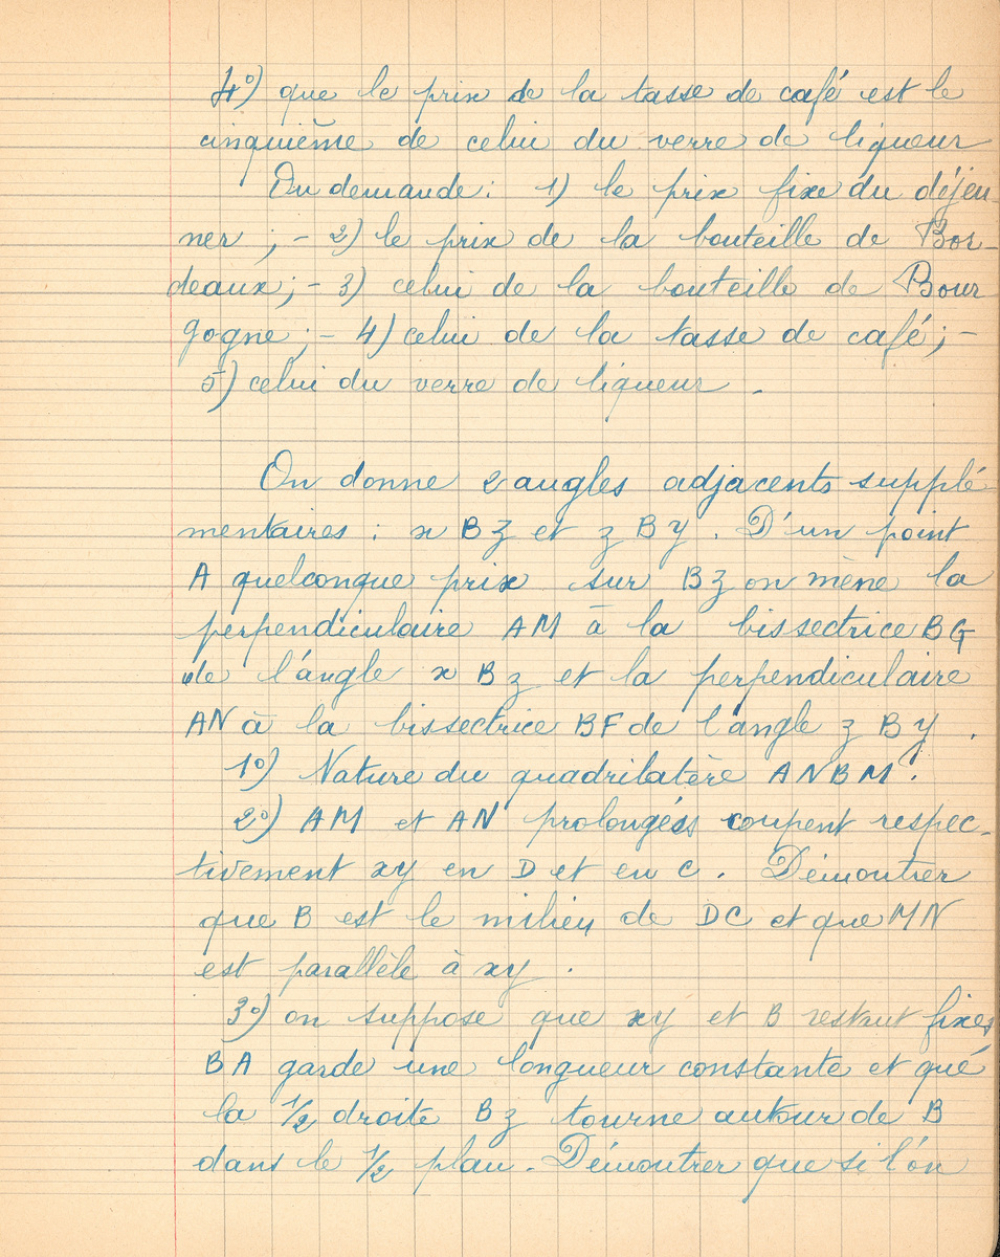 4°) que le prix de la tasse de café est le
cinquième de celui du verre de liqueur
On demande : 1) le prix fixe du déjeu-
ner ; - 2) le prix de la bouteille de Bor-
deaux ; - 3) celui de la bouteille de Bour
gogne ; - 4) celui de la tasse de café ; -
5) celui du verre de liqueur .
On donne 2 angles adjacents supplé
mentaires : x B z et z B y . D'un point
A quelconque prix sur Bz on mène la
perpendiculaire AM à la bissectrice BG
de l'angle x B z et la perpendiculaire
AN à la bissectrice BF de l'angle z B y .
1°) Nature du quadrilatère ANBM ?
2°) AM et AN prolongés coupent respec-
tivement xy en D et en C . Démontrer
que B est le milieu de DC et que MN
est parallèle à xy .
3°) on suppose que xy et B restent fixes
BA garde une longueur constante et que
la 1/2 droite Bz tourne autour de B
dans le 1/2 plan . Démontrer que si l'on